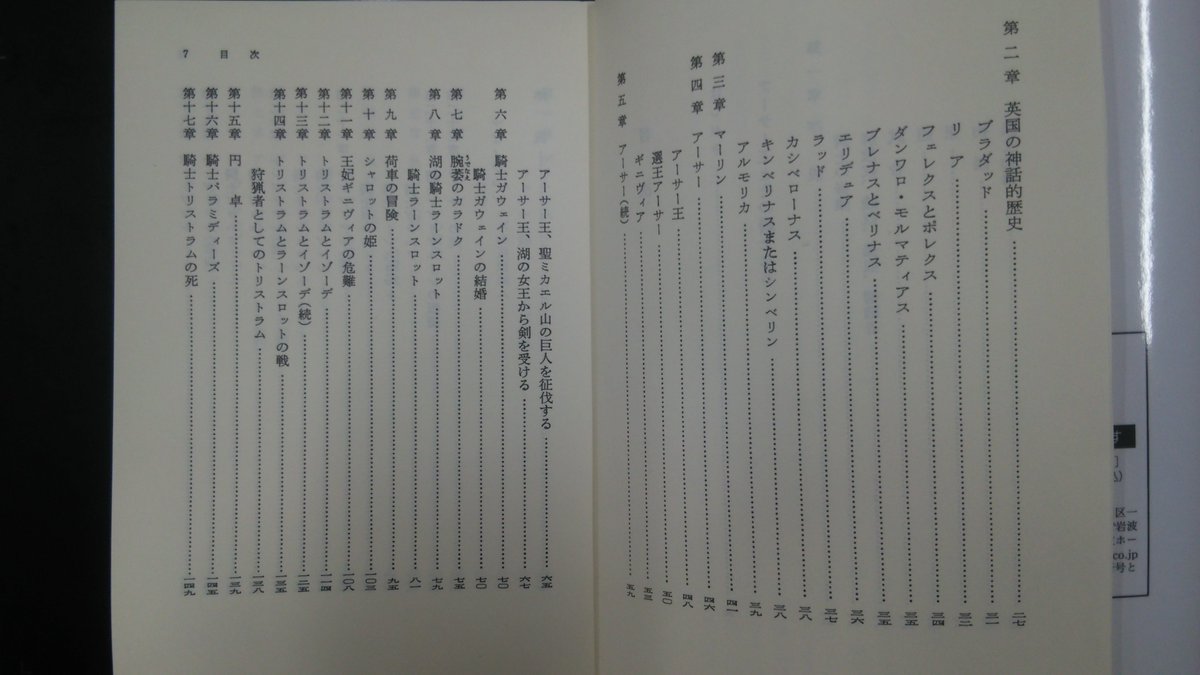 第二章 英国の神話的歴史……二七
ブラダッド……三一
リア……三二
フェレクスとポレクス……三四
ダンワロ・モルマティアス……三五
ブレナスとベリナス……三五
エリデュア……三六
ラッド……三七
カシベローナス……三八
キンベリナスまたはシンベリン……三八
アルモリカ……三九
第三章 マーリン……四一
第四章 アーサー……四六
アーサー王……四八
選王アーサー……五〇
ギニヴィア……五三
第五章 アーサー(続)……五九
アーサー王、聖ミカエル山の巨人を征伐する……六五
アーサー王、湖の女王から剣を受ける……六七
第六章 騎士ガウェイン……七〇
騎士ガウェインの結婚……七〇
第七章 腕萎のカラドク……七五
第八章 湖の騎士ラーンスロット……七九
騎士ラーンスロット……八一
第九章 荷車の冒険……九五
第十章 シャロットの姫……一〇三
第十一章 王妃ギニヴィアの危難……一〇八
第十二章 トリストラムとイゾーデ……一一四
第十三章 トリストラムとイゾーデ(続)……一二五
第十四章 トリストラムとラーンスロットの戦……一三五
狩猟者としてのトリストラム……一三八
第十五章 円卓……一三九
第十六章 騎士パラミディーズ……一四五
第十七章 騎士トリストラムの死……一四九
7 目次
区一
波
ホー
co.jp
号と